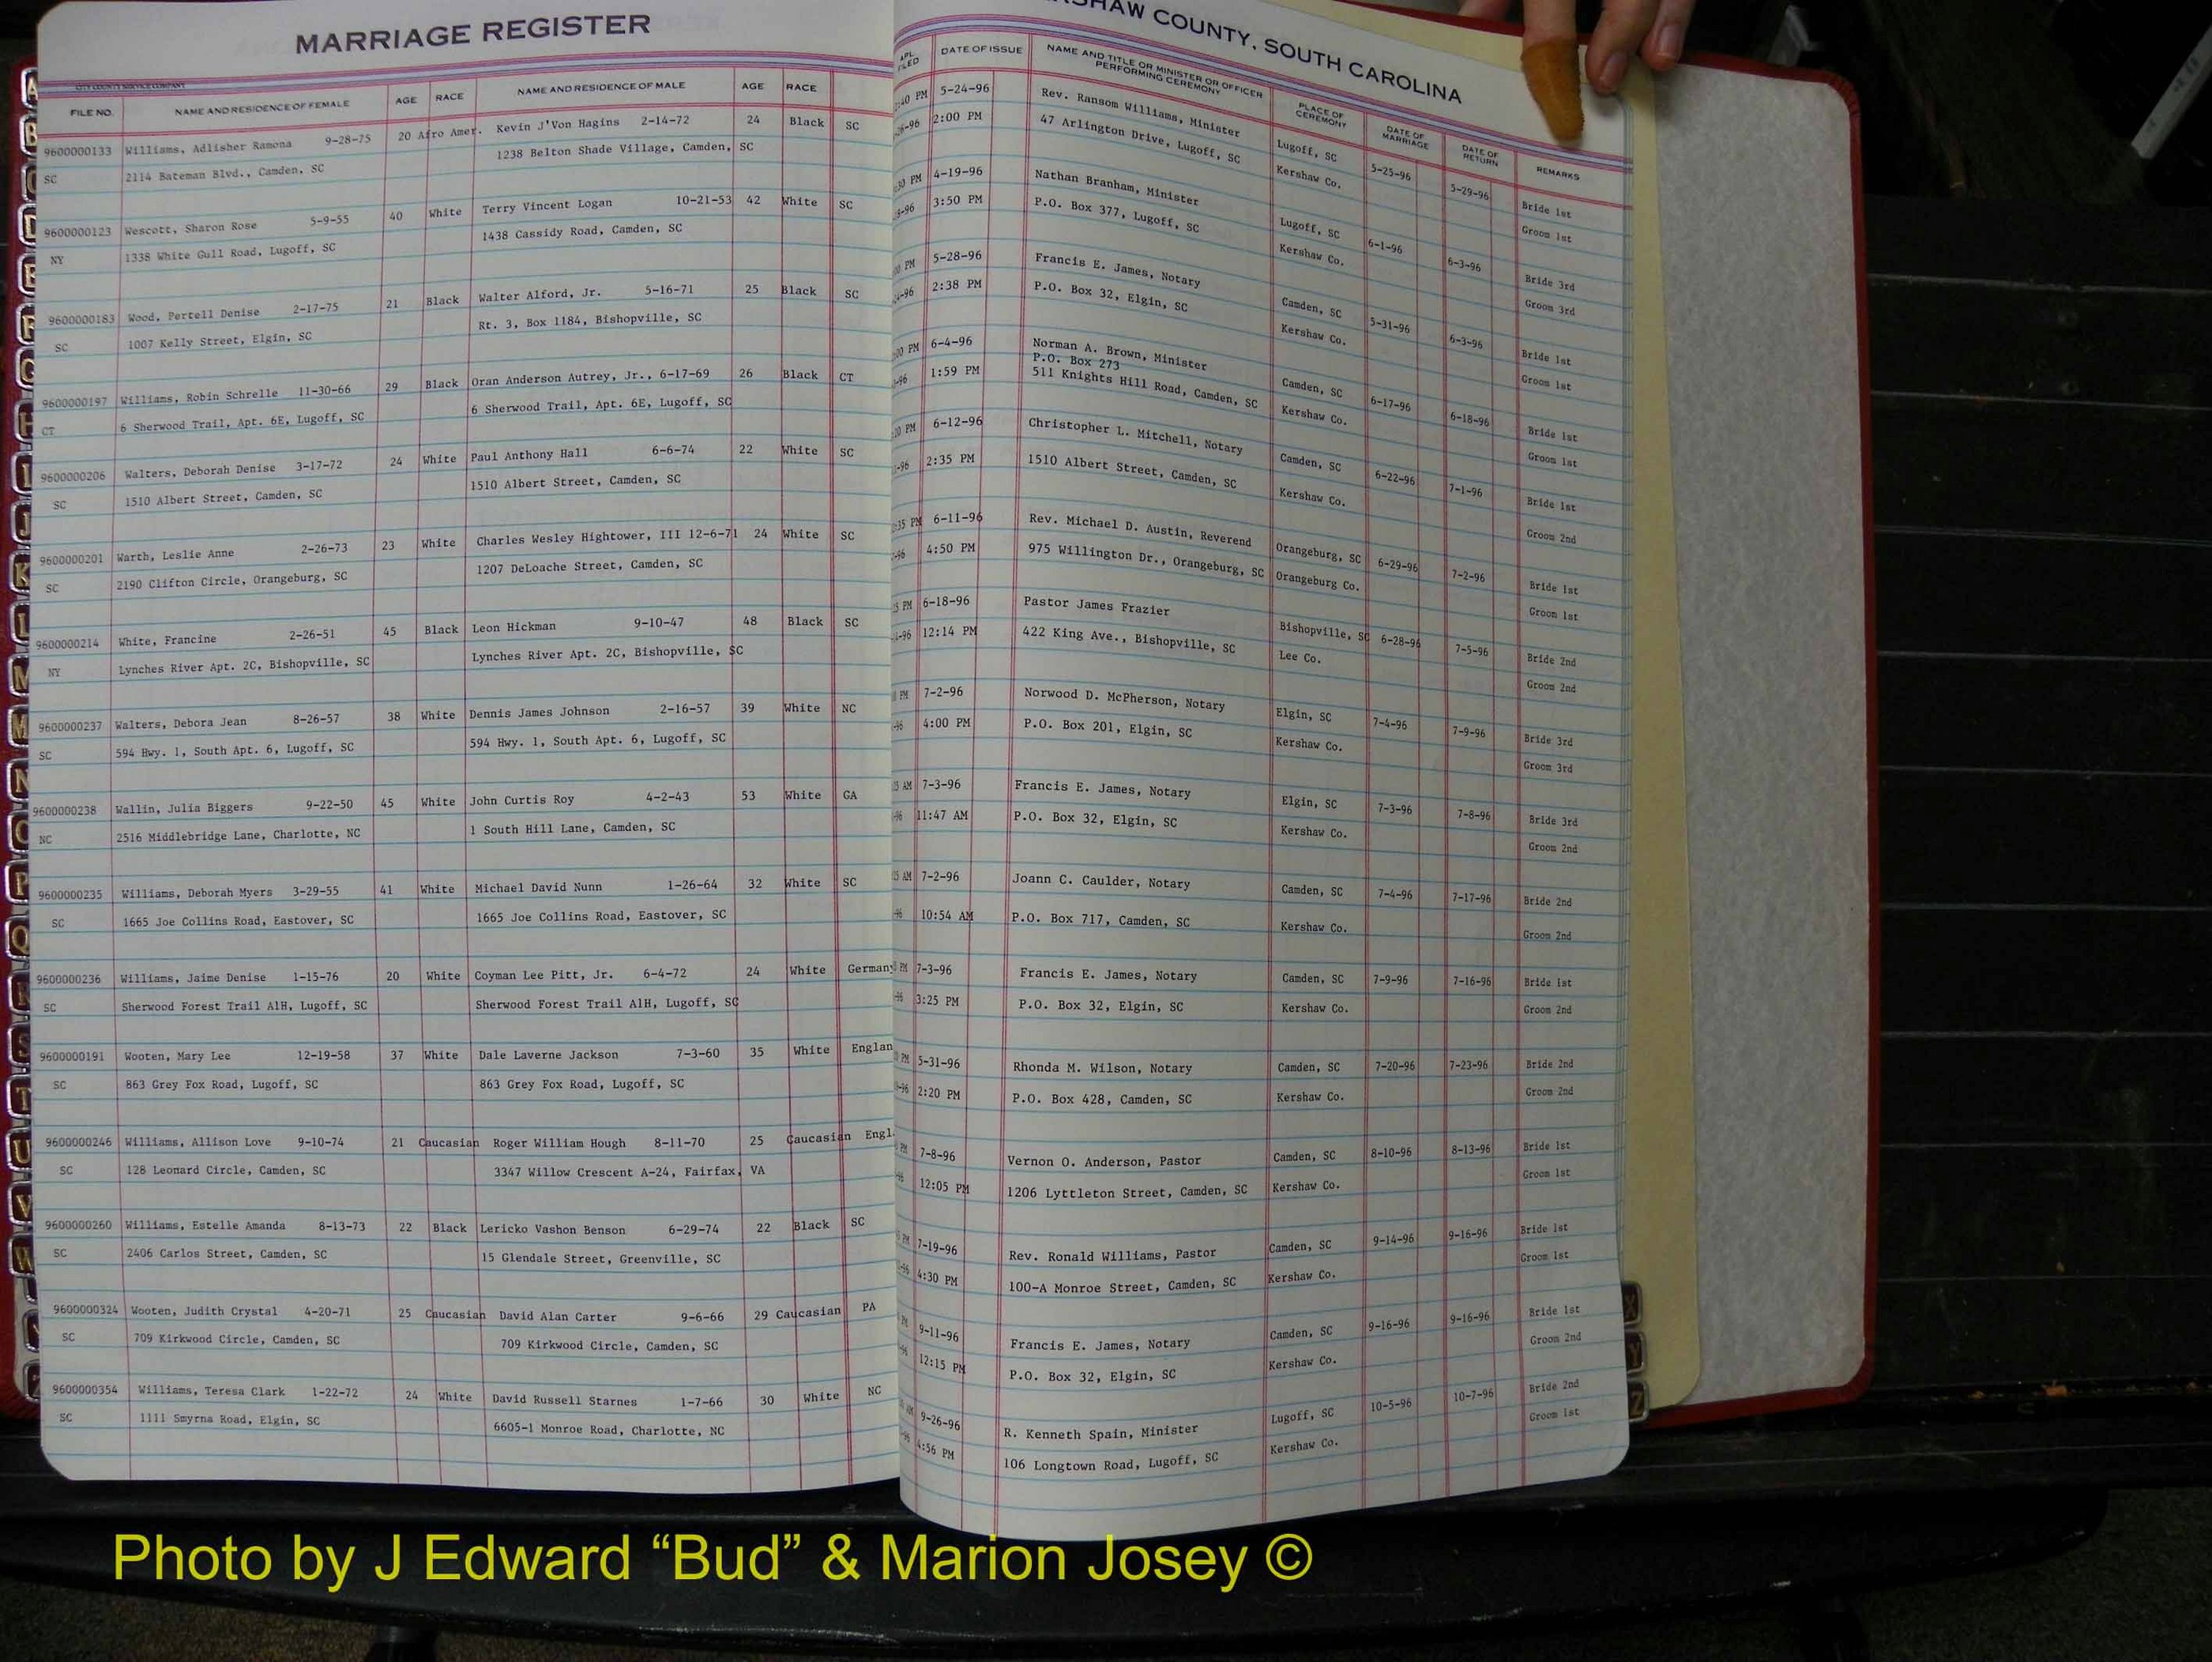 MARRIAGE REGISTER
CITY COUNTY SERVICE COMPANY
FILE NO. NAME AND RESIDENCE OF FEMALE AGE RACE NAME AND RESIDENCE OF MALE AGE RACE
9600000133 Williams, Adlisher Ramona 9-28-75 20 Afro Amer. Kevin J'Von Hagins 2-14-72 24 Black SC
SC 2114 Bateman Blvd., Camden, SC 1238 Belton Shade Village, Camden, SC
9600000123 Wescott, Sharon Rose 5-9-55 40 White Terry Vincent Logan 10-21-53 42 White SC
NY 1338 White Gull Road, Lugoff, SC 1438 Cassidy Road, Camden, SC
9600000183 Wood, Pertell Denise 2-17-75 21 Black Walter Alford, Jr. 5-16-71 25 Black SC
SC 1007 Kelly Street, Elgin, SC Rt. 3, Box 1184, Bishopville, SC
9600000197 Williams, Robin Schrelle 11-30-66 29 Black Oran Anderson Autrey, Jr., 6-17-69 26 Black CT
CT 6 Sherwood Trail, Apt. 6E, Lugoff, SC 6 Sherwood Trail, Apt. 6E, Lugoff, SC
9600000206 Walters, Deborah Denise 3-17-72 24 White Paul Anthony Hall 6-6-74 22 White SC
SC 1510 Albert Street, Camden, SC 1510 Albert Street, Camden, SC
9600000201 Warth, Leslie Anne 2-26-73 23 White Charles Wesley Hightower, III 12-6-71 24 White SC
SC 2190 Clifton Circle, Orangeburg, SC 1207 DeLoache Street, Camden, SC
9600000214 White, Francine 2-26-51 45 Black Leon Hickman 9-10-47 48 Black SC
NY Lynches River Apt. 2C, Bishopville, SC Lynches River Apt. 2C, Bishopville, SC
9600000237 Walters, Debora Jean 8-26-57 38 White Dennis James Johnson 2-16-57 39 White NC
SC 594 Hwy. 1, South Apt. 6, Lugoff, SC 594 Hwy. 1, South Apt. 6, Lugoff, SC
9600000238 Wallin, Julia Biggers 9-22-50 45 White John Curtis Roy 4-2-43 53 White GA
NC 2516 Middlebridge Lane, Charlotte, NC 1 South Hill Lane, Camden, SC
9600000235 Williams, Deborah Myers 3-29-55 41 White Michael David Nunn 1-26-64 32 White SC
SC 1665 Joe Collins Road, Eastover, SC 1665 Joe Collins Road, Eastover, SC
9600000236 Williams, Jaime Denise 1-15-76 20 White Coyman Lee Pitt, Jr. 6-4-72 24 White German
SC Sherwood Forest Trail A1H, Lugoff, SC Sherwood Forest Trail A1H, Lugoff, SC
9600000191 Wooten, Mary Lee 12-19-58 37 White Dale Laverne Jackson 7-3-60 35 White Englan
SC 863 Grey Fox Road, Lugoff, SC 863 Grey Fox Road, Lugoff, SC
9600000246 Williams, Allison Love 9-10-74 21 Caucasian Roger William Hough 8-11-70 25 Caucasian Engl.
SC 128 Leonard Circle, Camden, SC 3347 Willow Crescent A-24, Fairfax, VA
9600000260 Williams, Estelle Amanda 8-13-73 22 Black Lericko Vashon Benson 6-29-74 22 Black SC
SC 2406 Carlos Street, Camden, SC 15 Glendale Street, Greenville, SC
9600000324 Wooten, Judith Crystal 4-20-71 25 Caucasian David Alan Carter 9-6-66 29 Caucasian PA
SC 709 Kirkwood Circle, Camden, SC 709 Kirkwood Circle, Camden, SC
9600000354 Williams, Teresa Clark 1-22-72 24 White David Russell Starnes 1-7-66 30 White NC
SC 1111 Smyrna Road, Elgin, SC 6605-1 Monroe Road, Charlotte, NC
SHAW COUNTY, SOUTH CAROLINA
APL. FILED DATE OF ISSUE NAME AND TITLE OR MINISTER OR OFFICER PERFORMING CEREMONY PLACE OF CEREMONY DATE OF MARRIAGE DATE OF RETURN REMARKS
:40 PM 5-24-96 Rev. Ransom Williams, Minister Lugoff, SC 5-25-96 5-29-96 Bride 1st
2:00 PM 47 Arlington Drive, Lugoff, SC Kershaw Co. Groom 1st
:30 PM 4-19-96 Nathan Branham, Minister Lugoff, SC 6-1-96 6-3-96 Bride 3rd
3:50 PM P.O. Box 377, Lugoff, SC Kershaw Co. Groom 3rd
PM 5-28-96 Francis E. James, Notary Camden, SC 5-31-96 6-3-96 Bride 1st
2:38 PM P.O. Box 32, Elgin, SC Kershaw Co. Groom 1st
:00 PM 6-4-96 Norman A. Brown, Minister Camden, SC 6-17-96 6-18-96 Bride 1st
P.O. Box 273
1:59 PM 511 Knights Hill Road, Camden, SC Kershaw Co. Groom 1st
:20 PM 6-12-96 Christopher L. Mitchell, Notary Camden, SC 6-22-96 7-1-96 Bride 1st
-96 2:35 PM 1510 Albert Street, Camden, SC Kershaw Co. Groom 2nd
:35 PM 6-11-96 Rev. Michael D. Austin, Reverend Orangeburg, SC 6-29-96 7-2-96 Bride 1st
-96 4:50 PM 975 Willington Dr., Orangeburg, SC Orangeburg Co. Groom 1st
5 PM 6-18-96 Pastor James Frazier Bishopville, SC 6-28-96 7-5-96 Bride 2nd
-96 12:14 PM 422 King Ave., Bishopville, SC Lee Co. Groom 2nd
PM 7-2-96 Norwood D. McPherson, Notary Elgin, SC 7-4-96 7-9-96 Bride 3rd
-96 4:00 PM P.O. Box 201, Elgin, SC Kershaw Co. Groom 3rd
5 AM 7-3-96 Francis E. James, Notary Elgin, SC 7-3-96 7-8-96 Bride 3rd
-96 11:47 AM P.O. Box 32, Elgin, SC Kershaw Co. Groom 2nd
5 AM 7-2-96 Joann C. Caulder, Notary Camden, SC 7-4-96 7-17-96 Bride 2nd
-96 10:54 AM P.O. Box 717, Camden, SC Kershaw Co. Groom 2nd
PM 7-3-96 Francis E. James, Notary Camden, SC 7-9-96 7-16-96 Bride 1st
-96 3:25 PM P.O. Box 32, Elgin, SC Kershaw Co. Groom 2nd
PM 5-31-96 Rhonda M. Wilson, Notary Camden, SC 7-20-96 7-23-96 Bride 2nd
-96 2:20 PM P.O. Box 428, Camden, SC Kershaw Co. Groom 2nd
PM 7-8-96 Vernon O. Anderson, Pastor Camden, SC 8-10-96 8-13-96 Bride 1st
12:05 PM 1206 Lyttleton Street, Camden, SC Kershaw Co. Groom 1st
PM 7-19-96 Rev. Ronald Williams, Pastor Camden, SC 9-14-96 9-16-96 Bride 1st
-96 4:30 PM 100-A Monroe Street, Camden, SC Kershaw Co. Groom 1st
PM 9-11-96 Francis E. James, Notary Camden, SC 9-16-96 9-16-96 Bride 1st
12:15 PM P.O. Box 32, Elgin, SC Kershaw Co. Groom 2nd
AM 9-26-96 R. Kenneth Spain, Minister Lugoff, SC 10-5-96 10-7-96 Bride 2nd
4:56 PM 106 Longtown Road, Lugoff, SC Kershaw Co. Groom 1st
Photo by J Edward “Bud” & Marion Josey ©